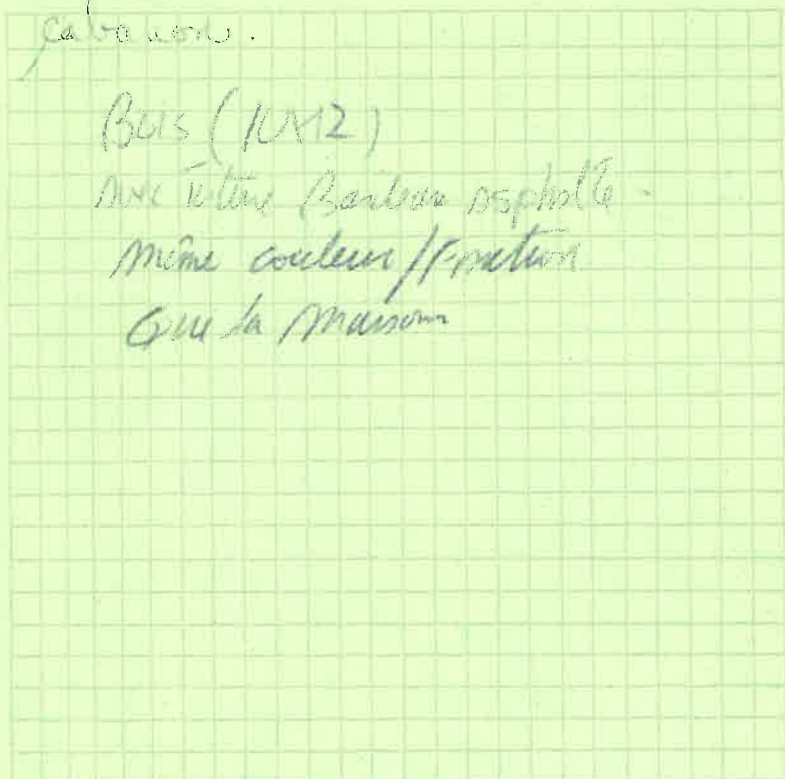 cabanon.
Bois (10x12)
Avec Toiture Bardeau asphalte.
même couleur/Finition
Que la maison